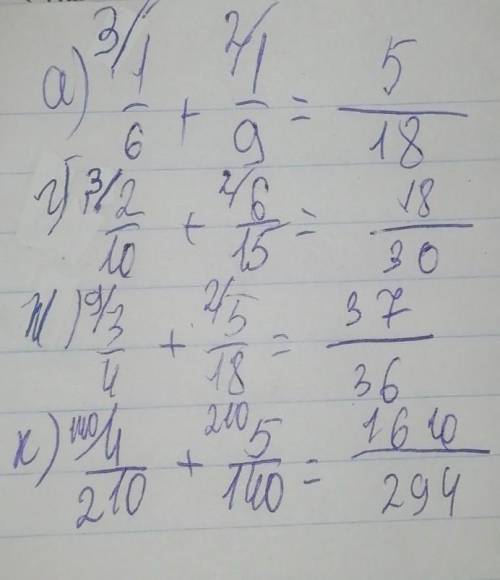 а) 3/ 1/6 + 2/ 1/9 = 5/18
г) 3/ 2/10 + 2/ 6/15 = 18/30
ж) 9/ 3/4 + 2/ 5/18 = 37/36
к) 140/ 4/210 + 210 5/140 = 1610/294